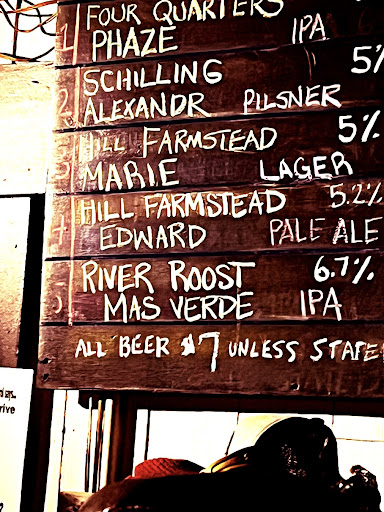 FOUR QUARTERS
1 PHAZE IPA
SCHILLING 5%
2 ALEXANDR PILSNER
HILL FARMSTEAD 5%
3 MARIE LAGER
HILL FARMSTEAD 5.2%
4 EDWARD PALE ALE
RIVER ROOST 6.7%
MAS VERDE IPA
ALL BEER $7 UNLESS STATE
rive